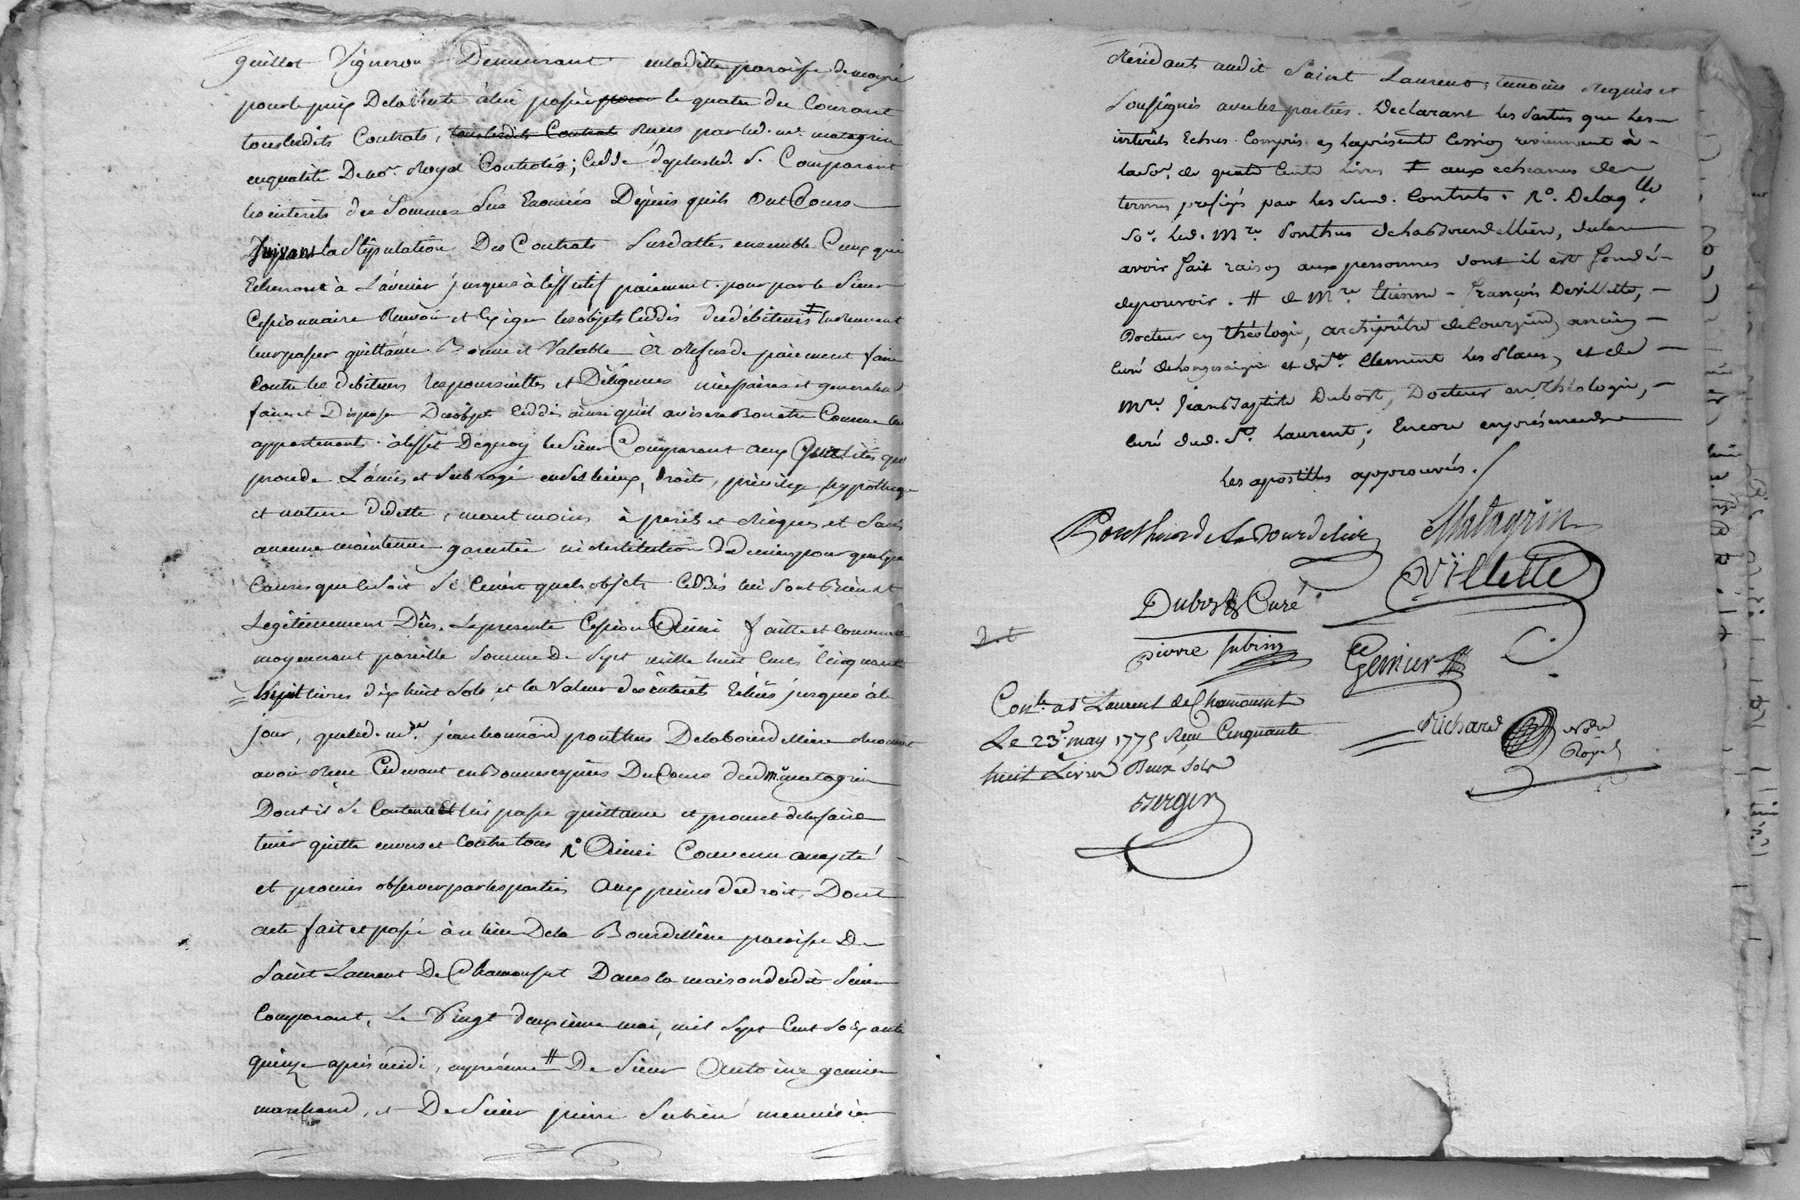 guillot Vigneron Demeurant enladitte paroisse demeyré
pour le prix Delavente à lui passée pour le quatre du Courant
touslesdits Contrats, touslesdits Contrats Reçus par led. me. matagrin
enqualité De no.re Royal
les intérêts des Sommes Sus Enoncées Depuis quils Ont Cours
Suivant la Stipulation Des Contrats Susdattés ensemble Ceux qui
Echeront à L'avenir jusques à l'effectif paiement. pour par le Sieur
Cessionnaire Recevoir et Exiger les objets Cédés des débiteurs
leur passer quittance Bonne et Valable à defaut de paiement faire
Contre les débiteurs les poursuittes et Diligences nécessaires et generalement
faire et Disposer Desobjets Cédés ainsi qu'il avisera Bon etre Comme lui
appartenants. à leffet Dequoy le Sieur Comparant aux qualités qui
procede L'a mis et Subrogé en ses lieux, droits, privilege hypotheque
et nature de dette, néant moins à perils et risques et Sans
aucune maintenue garentie ni restitution de deniers pour quelque
Cause que ce Soit Si Cenest que les objets Cédés lui sont Bien et
Légitimement Dûs. La presente Cession Ainsi faitte et Convenue
moyennant pareille Somme De Sept mille huit Cent Cinquante
huit livres dix huit Sols, et la Valeur des intérêts Echus jusques à ce
jour, que led. mre. jean leonnard ponthus Delabourdelliere
avoir Reçu Cidevant en Bonnes espèces Du Cours dud. mre matagrin
Dont il Se Contente Et lui passe quittance et promet de le faire
tenir quitte envers et Contre tous Ainsi Convenu accepté
et promis observer par les parties aux peines de droit, Dont
acte fait et passé au lieu Dela Bourdelliere paroisse De
Saint Laurent De Chamousset Dans la maison dudit Sieur
Comparant, Le Vingt deuxieme mai, mil Sept Cent Soixante
quinze après midi, en présence # De Sieur Antoine genier
marchand, et De Sieur pierre Subrin menuisier
Résidants audit Saint Laurent, temoins Requis et
Soussignés avec les parties. Declarant les Parties que les
intérêts Echus Compris en la présente Cession reviennent à
la So.e de quatre Cents livres ‡ aux echeances des
termes préfixés par les Susd. Contrats. Delaq.lle
So.e led. Mre Ponthus delabourdelliere, declare
avoir fait raison aux personnes dont il est fondé
depouvoir. # de Mre Etienne-François Devillette,
Docteur en théologie, archiprêtre de Courzieu, ancien
Curé de et de St. Clement les Places, et de
Mre. Jean Baptiste Dubost, Docteur en théologie,
Curé dud. St. Laurent; Encore en présence de
les apostilles approuvés.
Ponthus de La Bourdeliere Matagrin
DVillette
Dubost Curé
pierre Subrin Genier
Con.le a St Laurent de Chamousset
Le 23e may 1775 Reçu Cinquante
huit Livres Deux Sols
Berger
Richard No.re
Royal